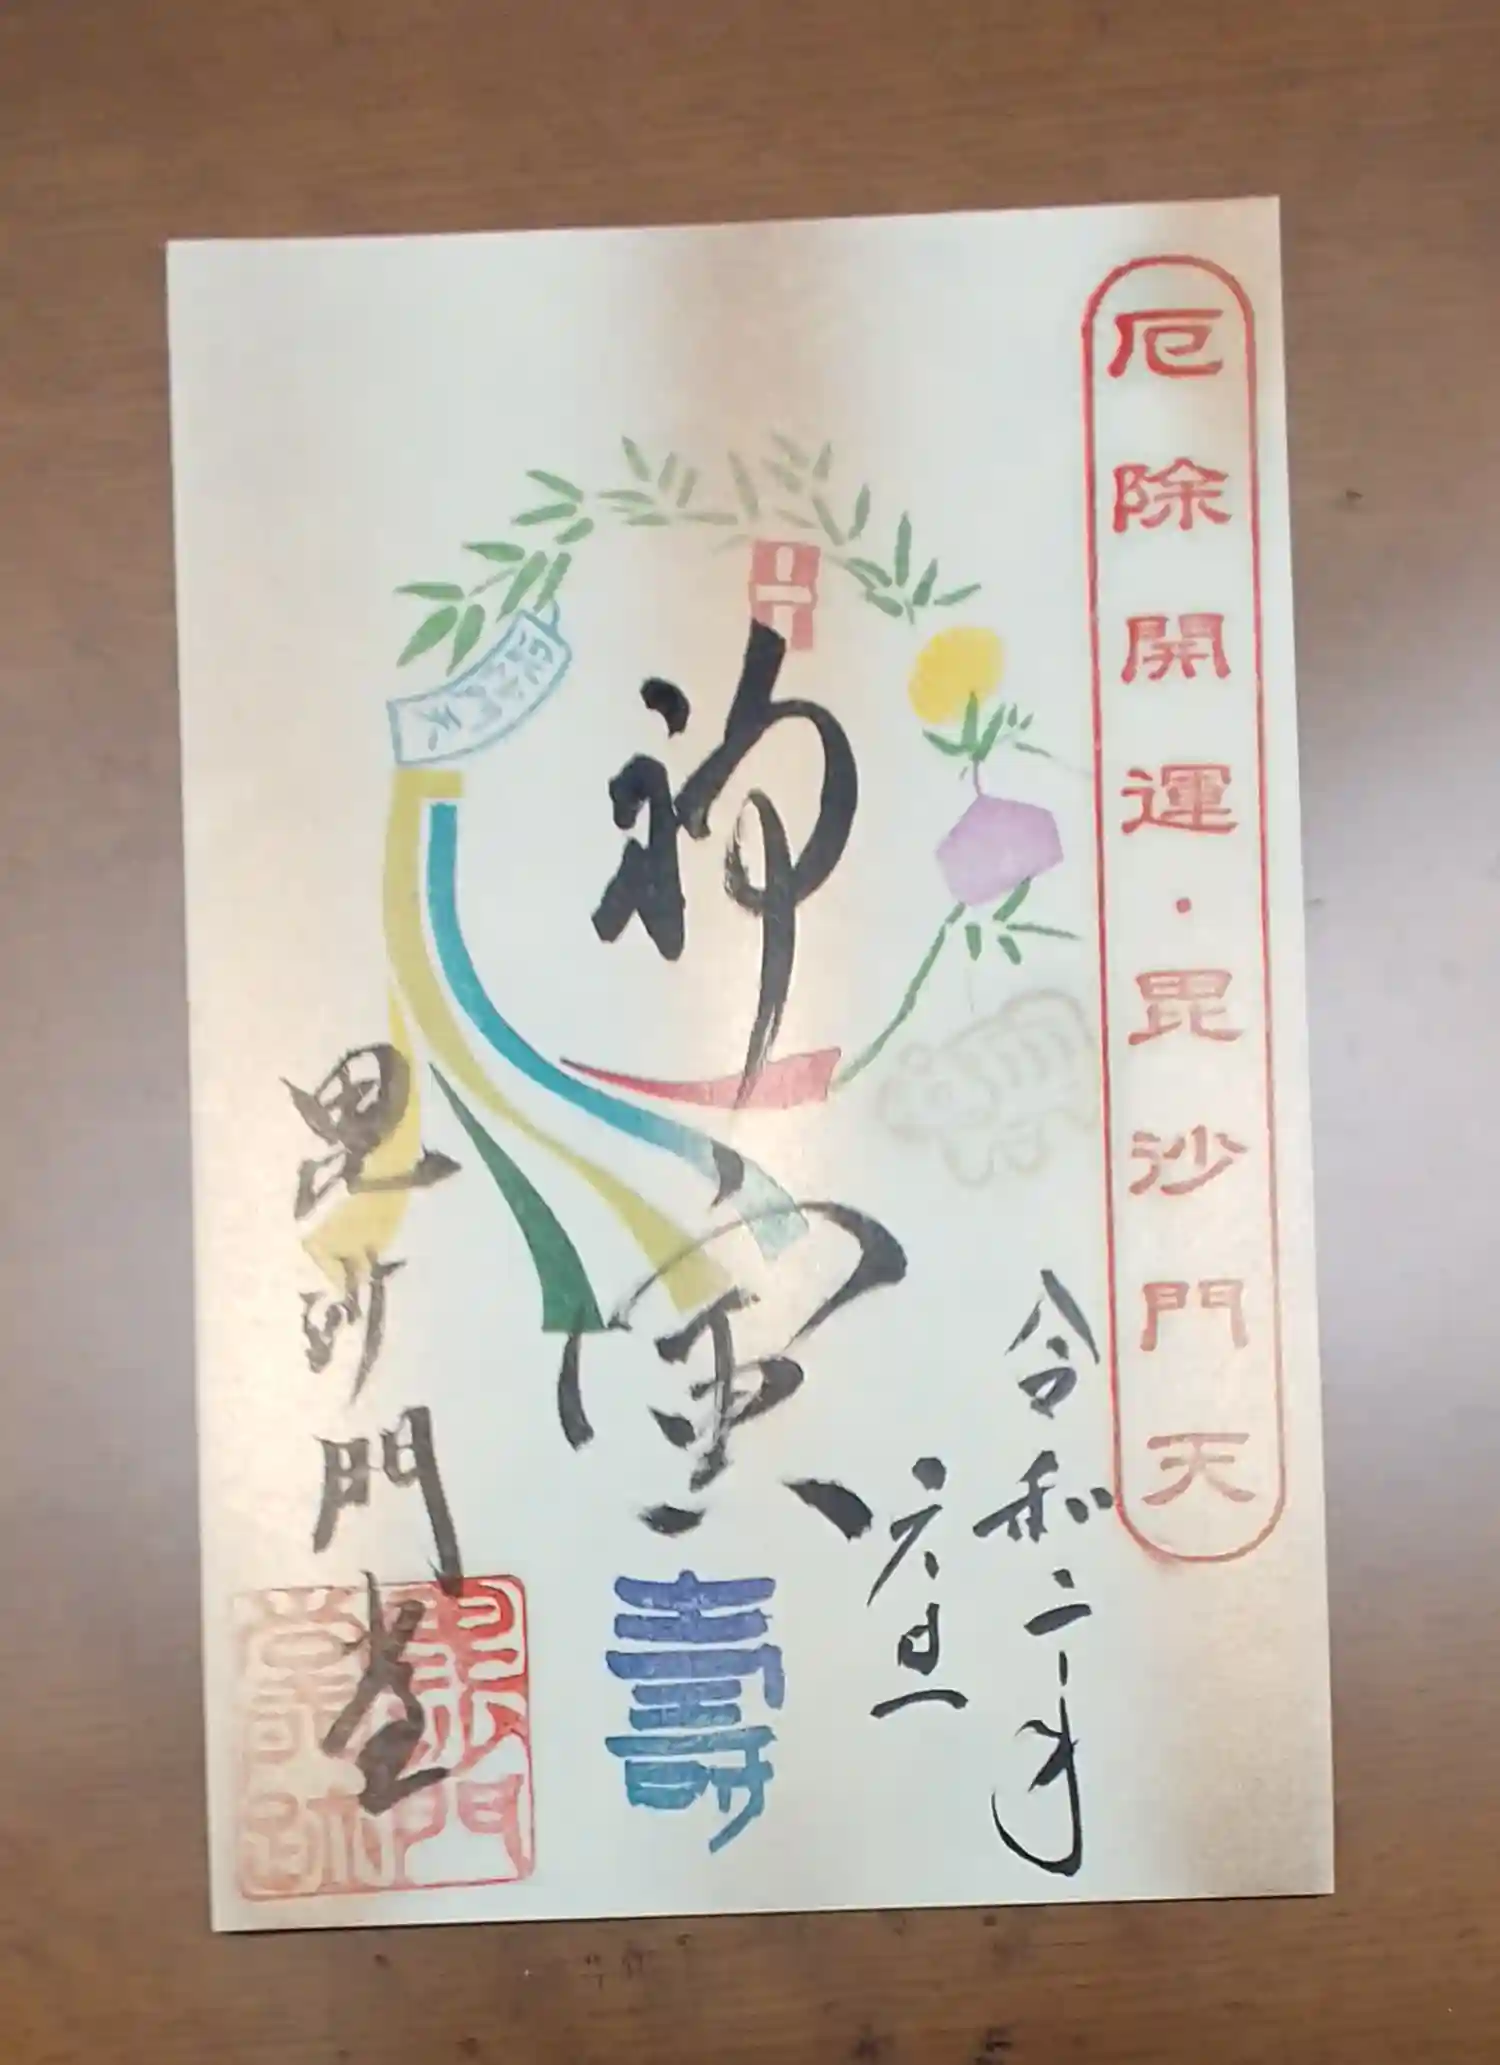 厄除開運・毘沙門天
令和二年
元旦
神寅
壽
毘沙門天
毘沙門堂